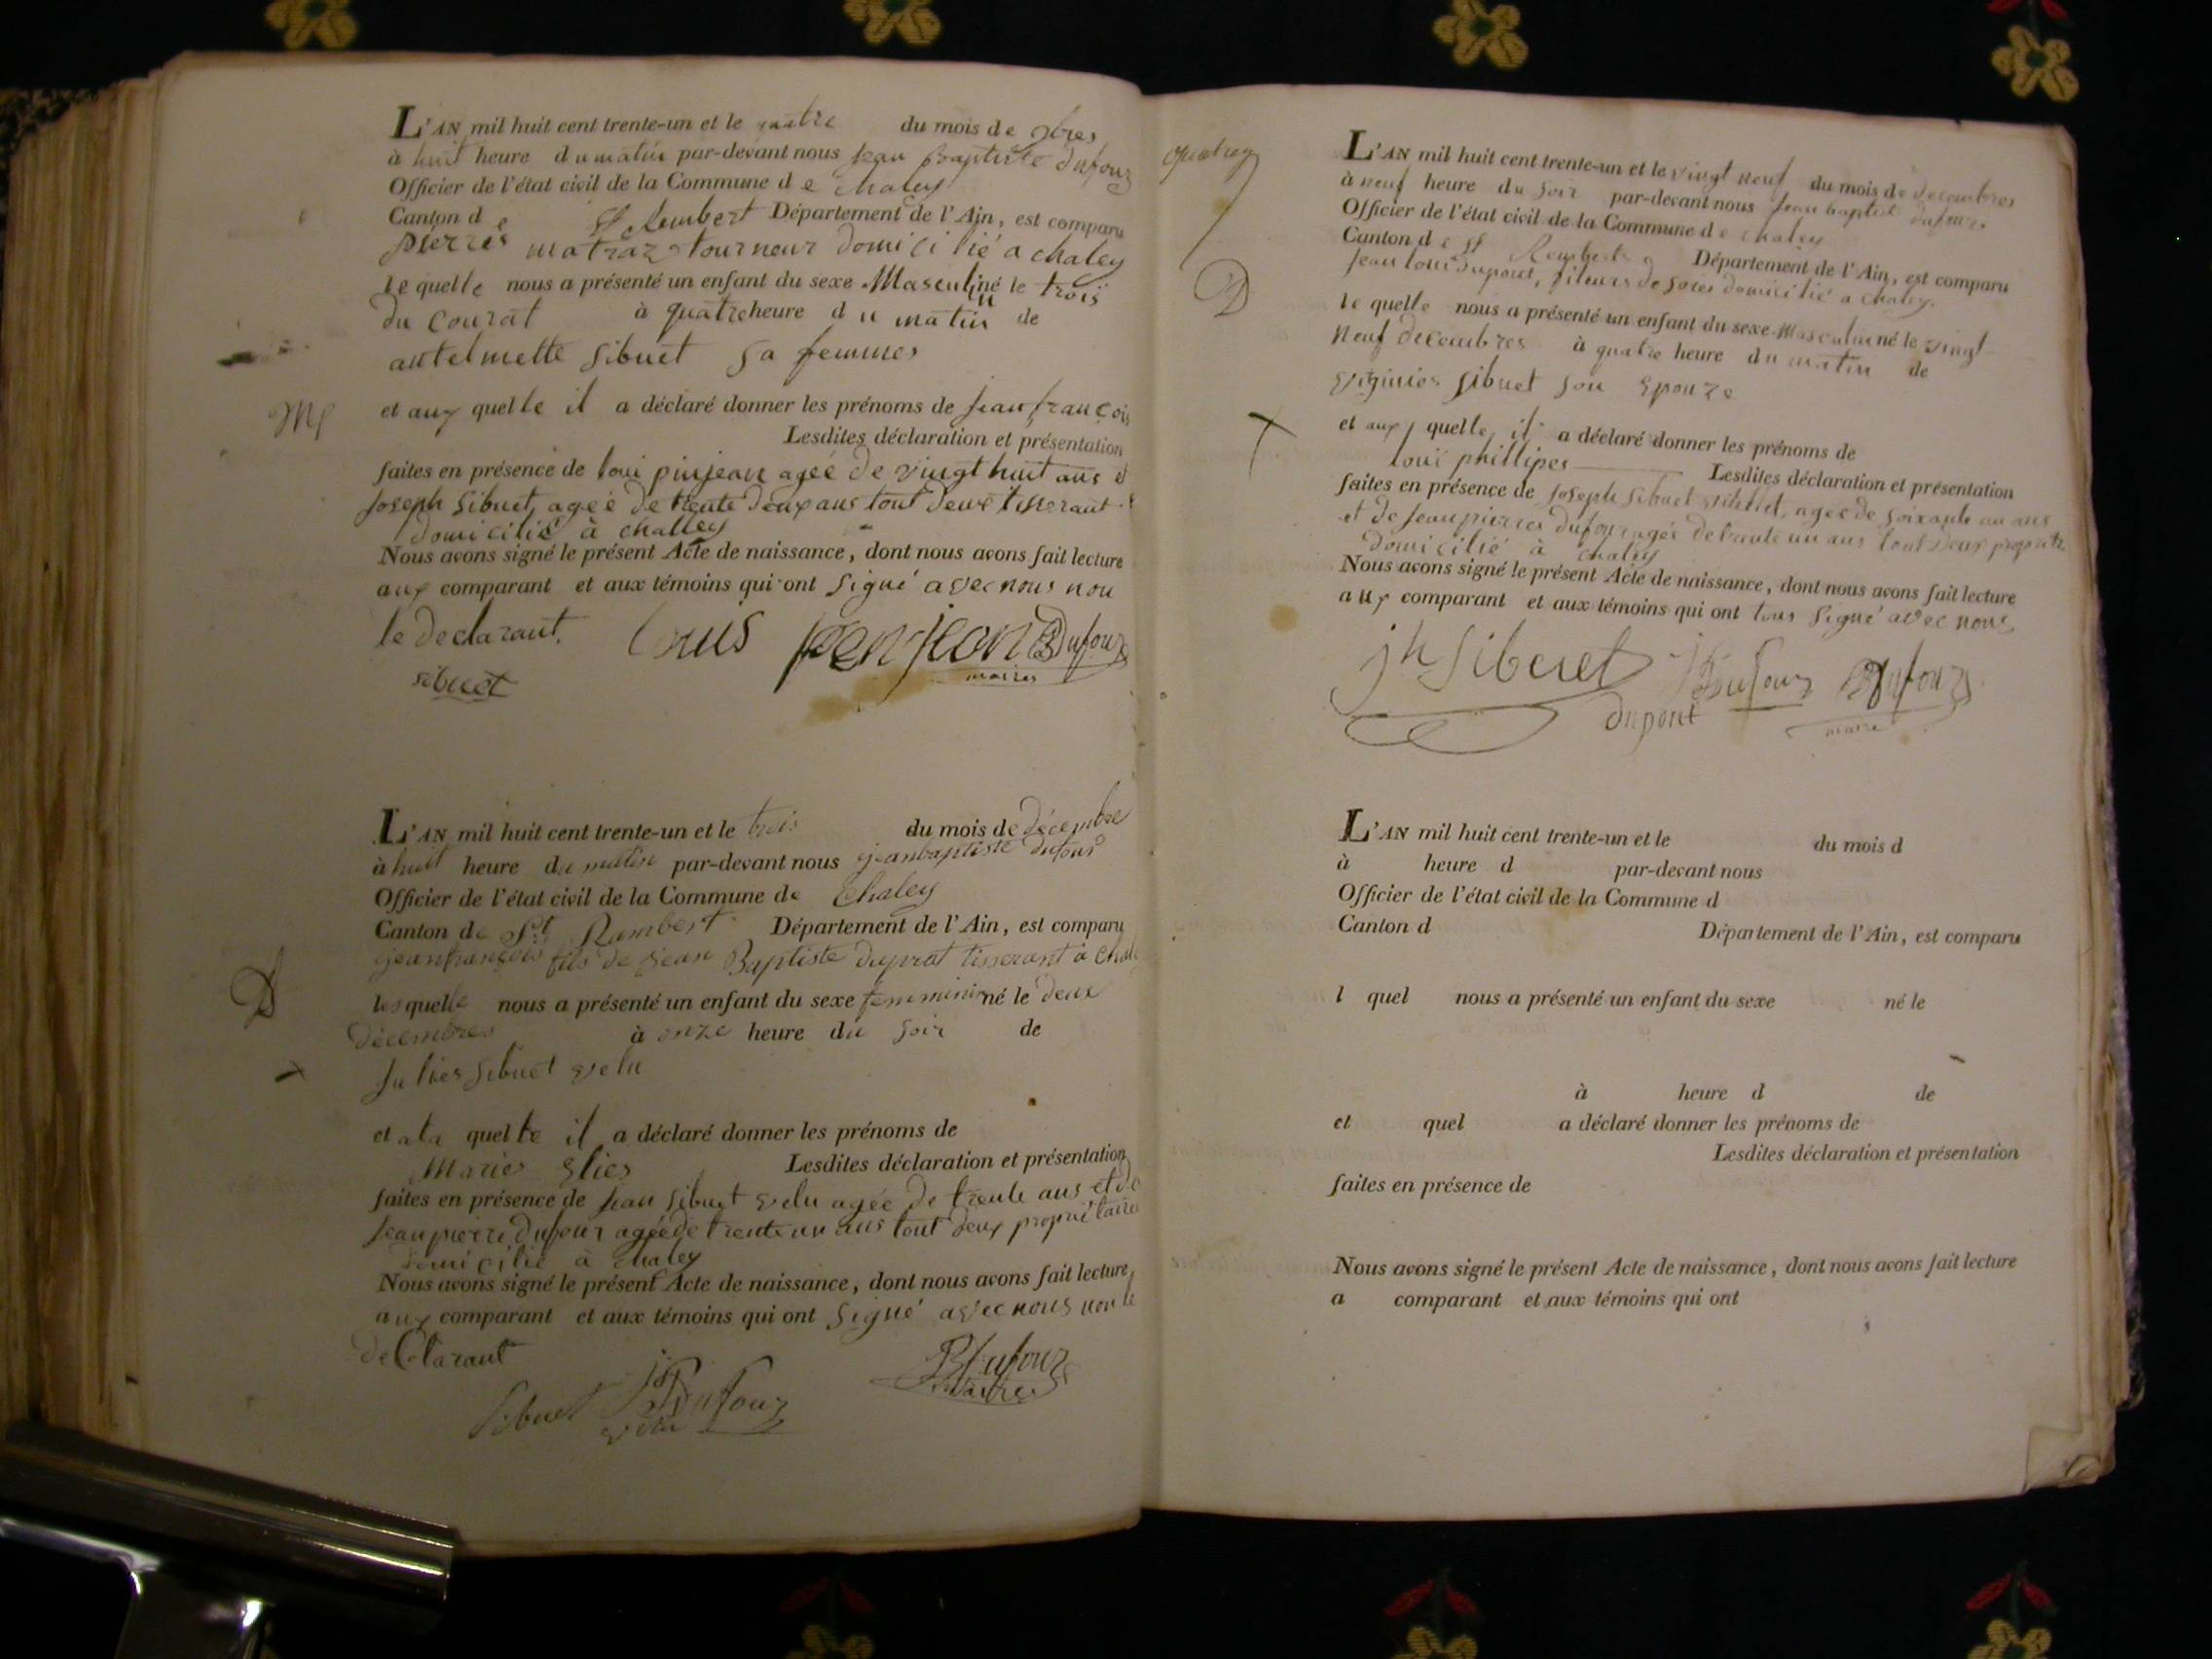 L'AN mil huit cent trente-un et le quatre du mois de 9bres
à huit heure du matin par-devant nous jean baptiste dufour
Officier de l'état civil de la Commune de chaley
Canton de St Rembert Département de l'Ain, est comparu
pierres matraz tourneur domicilié a chaley
le quelle nous a présenté un enfant du sexe Masculin né le troiï
du courat à quatre heure du matin de
antelmette sibuet sa femmes
Mf
et aux quelle il a déclaré donner les prénoms de jean françois
Lesdites déclaration et présentation
faites en présence de loui pinjean ageé de vingt huit ans et
joseph sibuet, ageé de trente deux ans tout deux tisserant
domicilié à challey
Nous avons signé le présent Acte de naissance, dont nous avons fait lecture
aux comparant et aux témoins qui ont signé avec nous non
le declarant. Louis penjean BDufour
maires
sibuet
L'AN mil huit cent trente-un et le trois du mois de décembre
à huit heure du matin par-devant nous jeanbaptiste dufour
Officier de l'état civil de la Commune de Chaley
Canton de St Rambert Département de l'Ain, est comparu
jeanfrançois fils de jean Baptiste duprat tisserant à Chaley
D
les quelle nous a présenté un enfant du sexe femminin né le deux
décembres à onze heure du soir de
julies sibuet velu
et a la quelle il a déclaré donner les prénoms de
Maries Elies Lesdites déclaration et présentation
faites en présence de jean sibuet velu ageé de trente ans et de
jean pierre dufour ageé de trente un ans tout deux propriétaires
domicilié à chaley
Nous avons signé le présent Acte de naissance, dont nous avons fait lecture
aux comparant et aux témoins qui ont signé avec nous non le
declarant
Sibuet jpDufour BDufour
velu maire
quatrey
L'AN mil huit cent trente-un et le vingt neuf du mois de decembres
à neuf heure du soir par-devant nous jean baptiste dufour
Officier de l'état civil de la Commune de chaley
Canton de st Rembert Département de l'Ain, est comparu
jean loui dupont, fileurs de soies domicilié a chaley.
D
le quelle nous a présenté un enfant du sexe Masculin né le vingt
neuf decembres à quatre heure du matin de
virginies sibuet son epouze
et aux quelle il a déclaré donner les prénoms de
louï phillipes Lesdites déclaration et présentation
faites en présence de joseph sibuet ageé de soixante un ans
et de jean pierres dufour agés de trente un ans tout deux proprietr
domicilié à chaley
Nous avons signé le présent Acte de naissance, dont nous avons fait lecture
aux comparant et aux témoins qui ont tous signé avec nous
jh Siberet jpDufour BDufour
dupont maire
L'AN mil huit cent trente-un et le du mois d
à heure d par-devant nous
Officier de l'état civil de la Commune d
Canton d Département de l'Ain, est comparu
l quel nous a présenté un enfant du sexe né le
à heure d de
et quel a déclaré donner les prénoms de
Lesdites déclaration et présentation
faites en présence de
Nous avons signé le présent Acte de naissance, dont nous avons fait lecture
a comparant et aux témoins qui ont